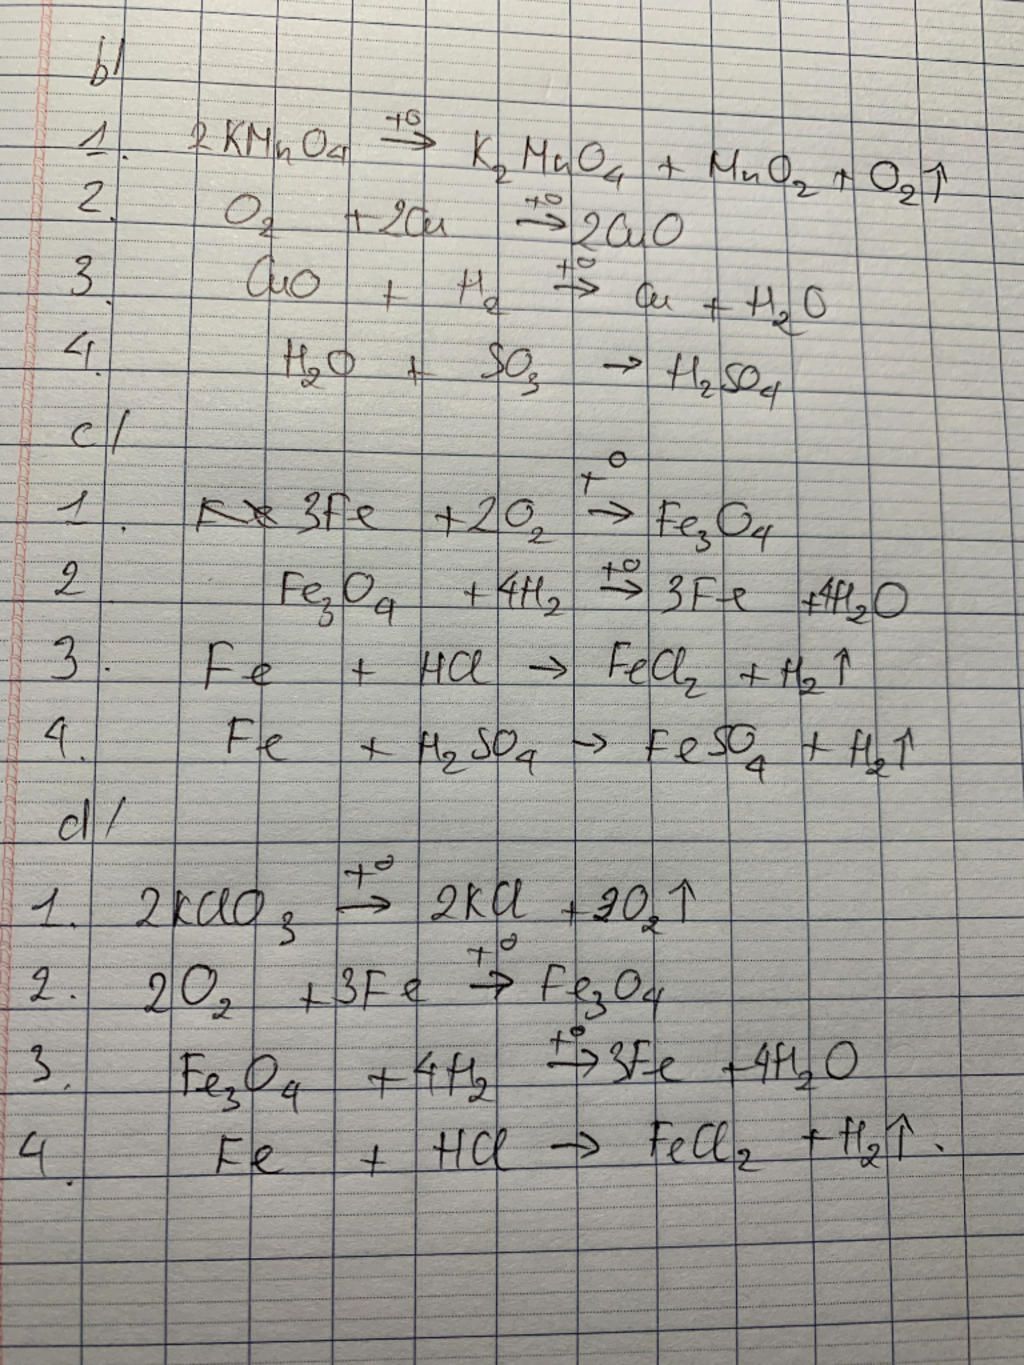 b/
1. 2KMnO₄ t° → K₂MnO₄ + MnO₂ + O₂↑
2. O₂ + 2Cu t° → 2CuO
3. CuO + H₂ t° → Cu + H₂O
4. H₂O + SO₃ → H₂SO₄
c/
1. 3Fe + 2O₂ t° → Fe₃O₄
2 Fe₃O₄ + 4H₂ t° → 3Fe + 4H₂O
3. Fe + HCl → FeCl₂ + H₂↑
4. Fe + H₂SO₄ → FeSO₄ + H₂↑
d/
1. 2KClO₃ t° → 2KCl + O₂↑
2. 2O₂ + 3Fe t° → Fe₃O₄
3. Fe₃O₄ + 4H₂ t° → 3Fe + 4H₂O
4. Fe + HCl → FeCl₂ + H₂↑.